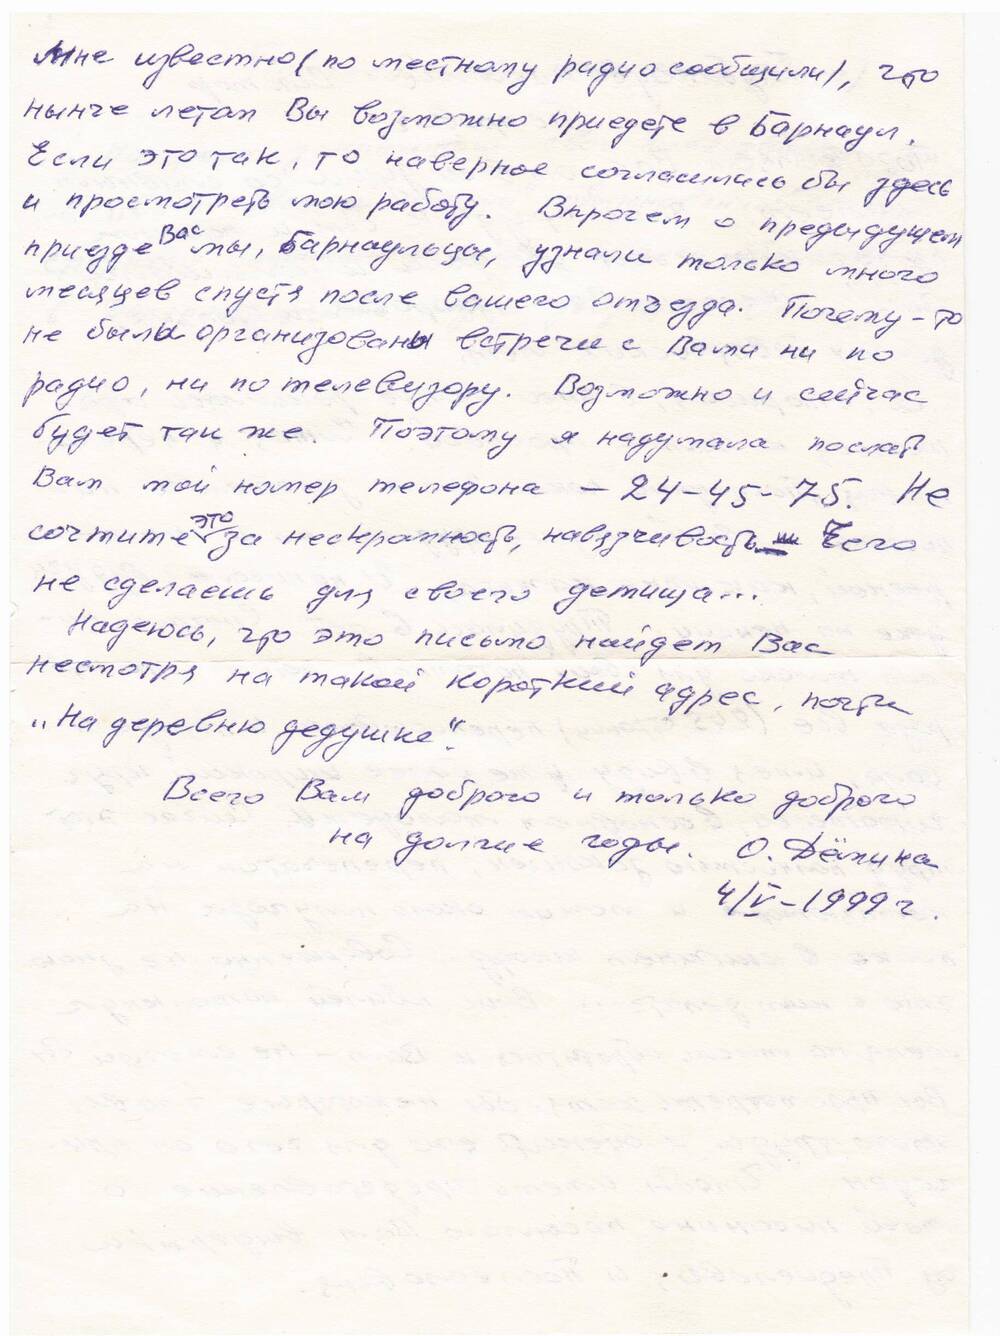 Мне известно (по местному радио сообщили), что
нынче летом Вы возможно приедете в Барнаул.
Если это так, то наверное согласились бы здесь
и просмотреть мою работу. Впрочем о предыдущем
приезде Вас мы, Барнаульцы, узнали только много
месяцев спустя после вашего отъезда. Почему-то
не были организованы встречи с Вами ни по
радио, ни по телевизору. Возможно и сейчас
будет так же. Поэтому я надумала послать
Вам мой номер телефона – 24-45-75. Не
сочтите это за нескромность, навязчивость. Чего
не сделаешь для своего детища...
Надеюсь, что это письмо найдет Вас
несмотря на такой короткий адрес, почти
„На деревню дедушке".
Всего Вам доброго и только доброго
на долгие годы. О. Дёмина
4/V-1999г.